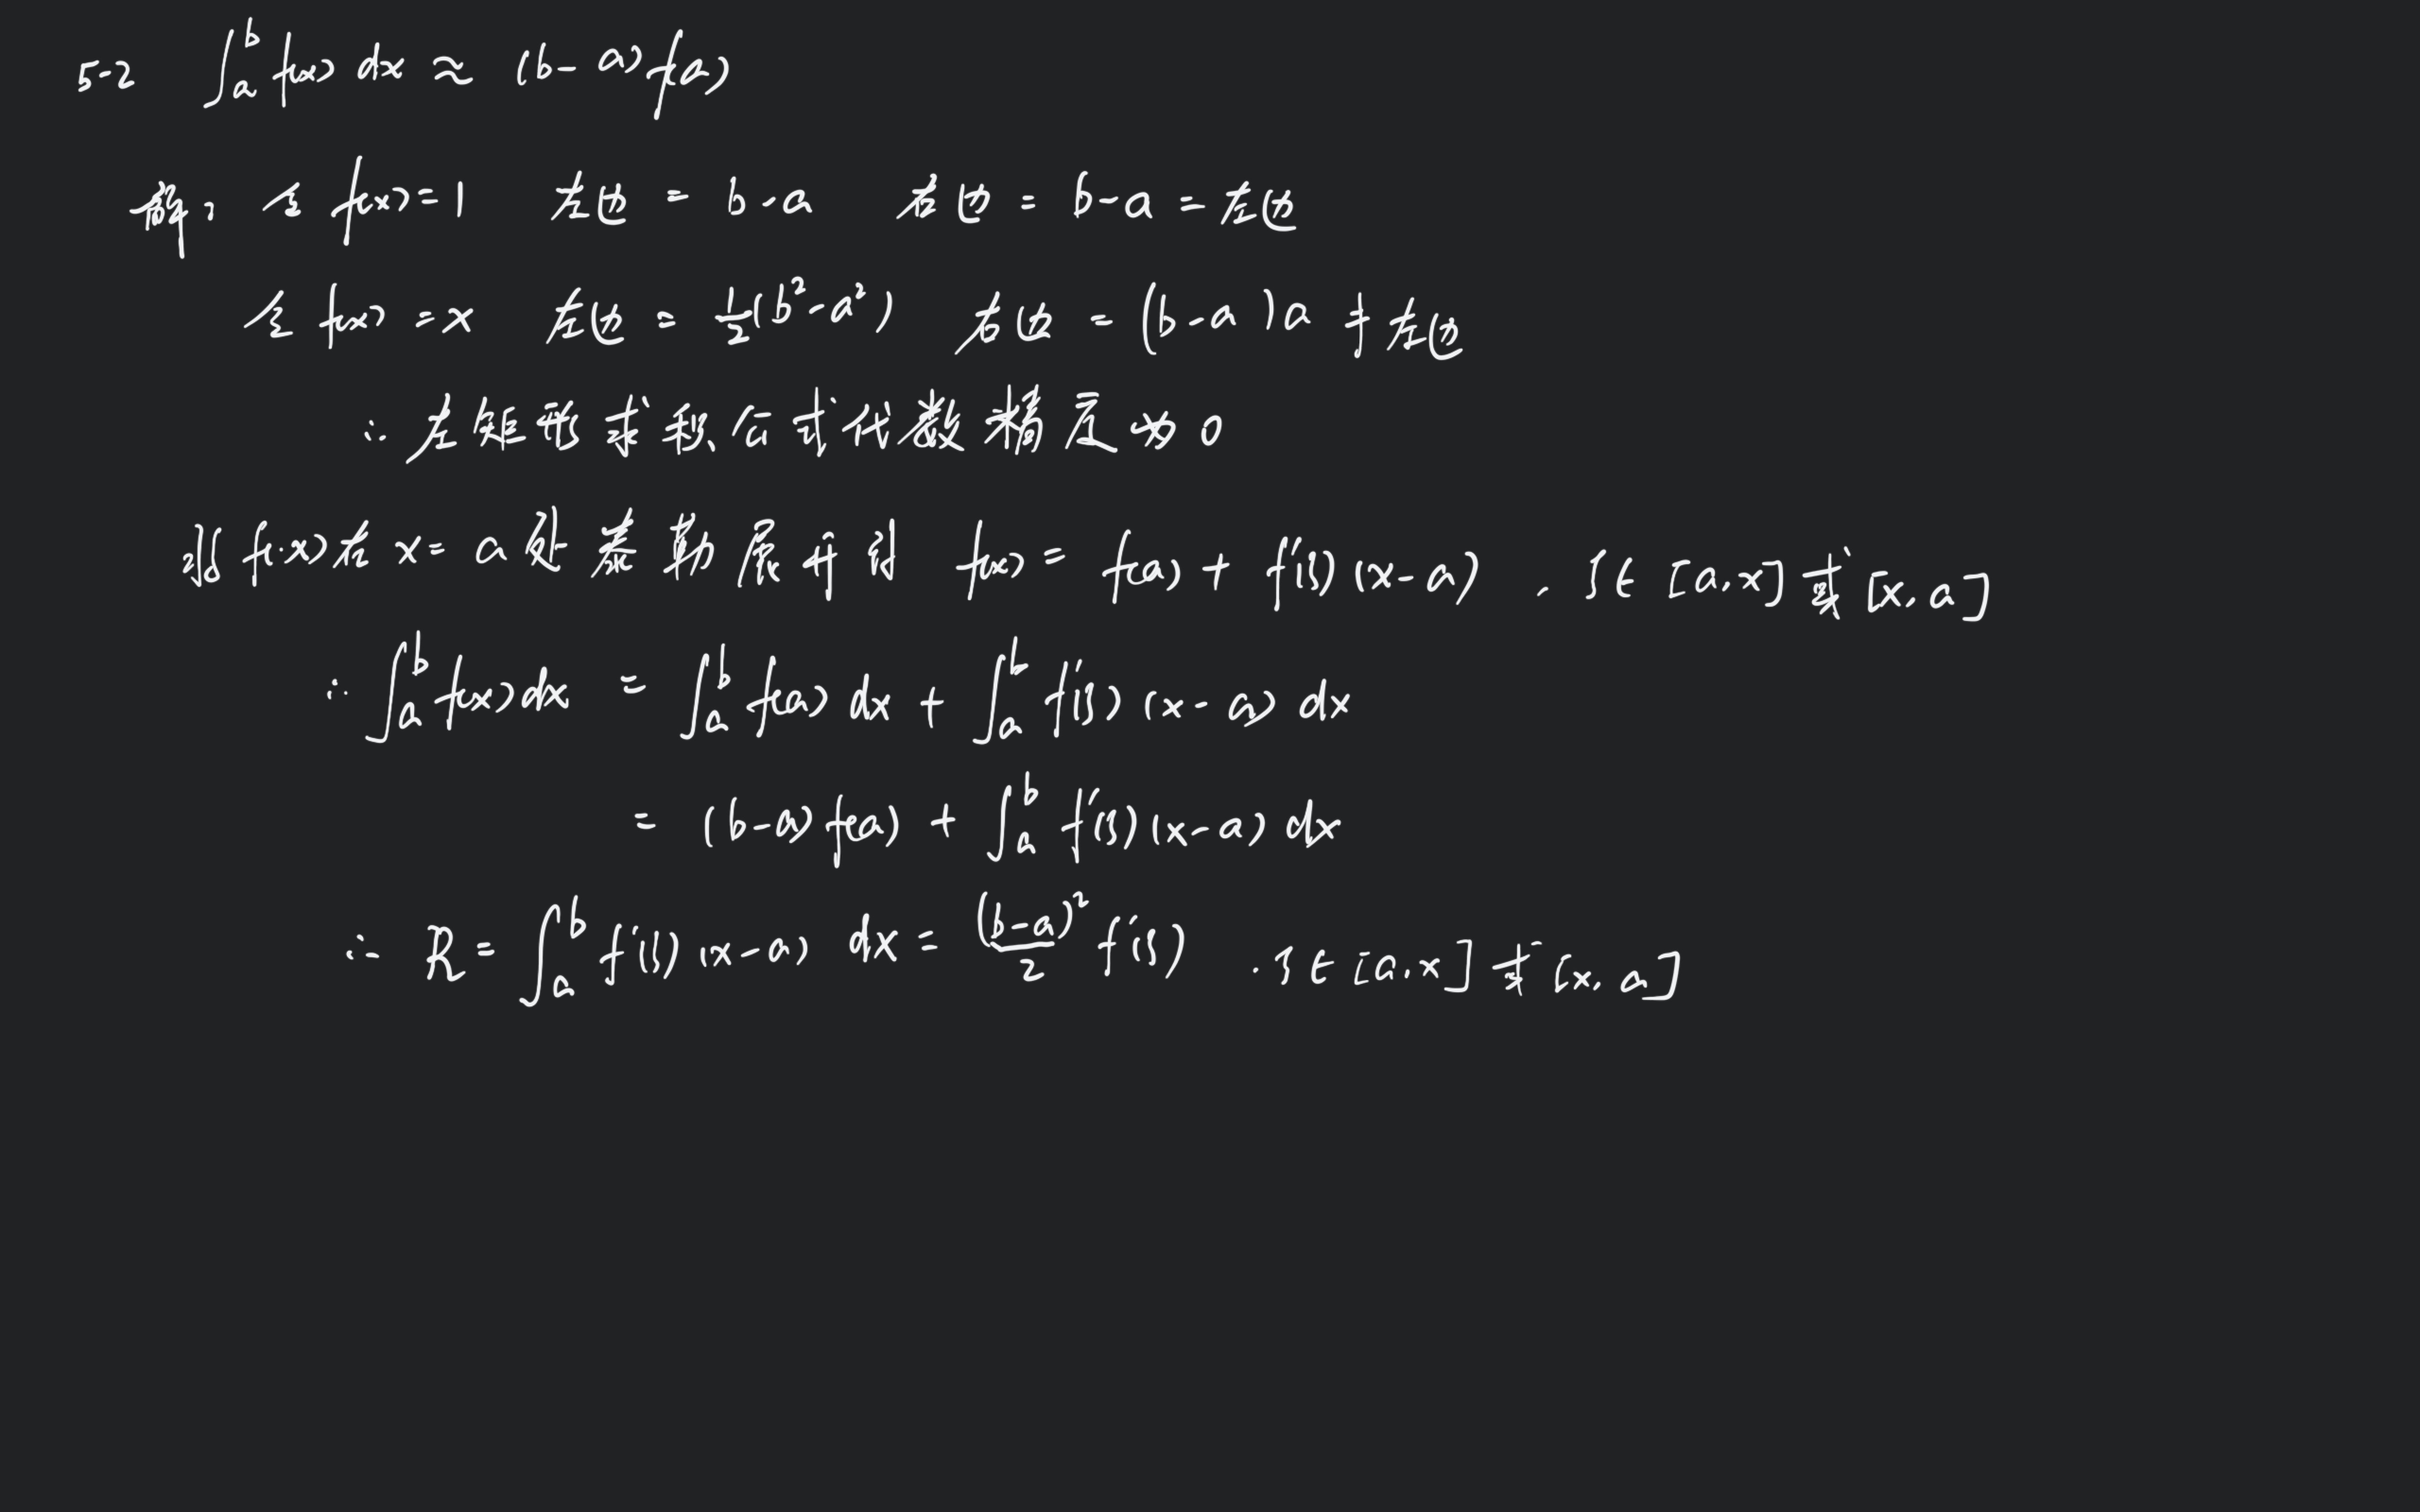 5-2 ∫_a^b f(x) dx ≈ (b-a) f(a)
解: 令 f(x)=1 左边 = b-a 右边 = b-a = 左边
令 f(x) = x 左边 = 1/2(b²-a²) 右边 = (b-a)a ≠ 左边
∴ 左矩形求积公式代数精度为0
将 f(x)在 x= a 处泰勒展开得 f(x) = f(a) + f'(ξ)(x-a) , ξ∈[a,x]或[x,a]
∴ ∫_a^b f(x)dx = ∫_a^b f(a) dx + ∫_a^b f'(ξ)(x-a) dx
= (b-a) f(a) + ∫_a^b f'(ξ)(x-a) dx
∴ R = ∫_a^b f'(ξ)(x-a) dx = (b-a)²/2 f'(ξ) , ξ∈[a,x]或[x,a]